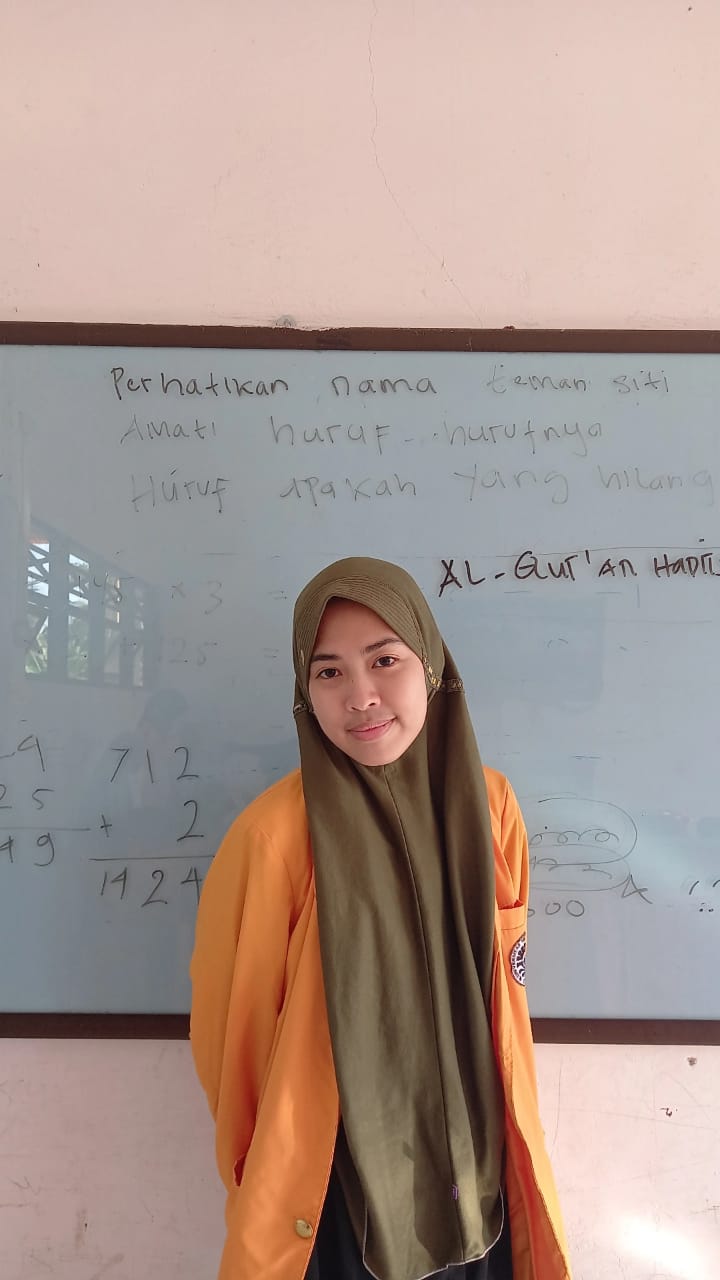 Perhatikan nama teman siti
Amati huruf-..hurufnya
Huruf apakah yang hilang
AL-Qur'an Hadi
145 x 3 =
25 =
9 712
25 + 2
49 1424
500